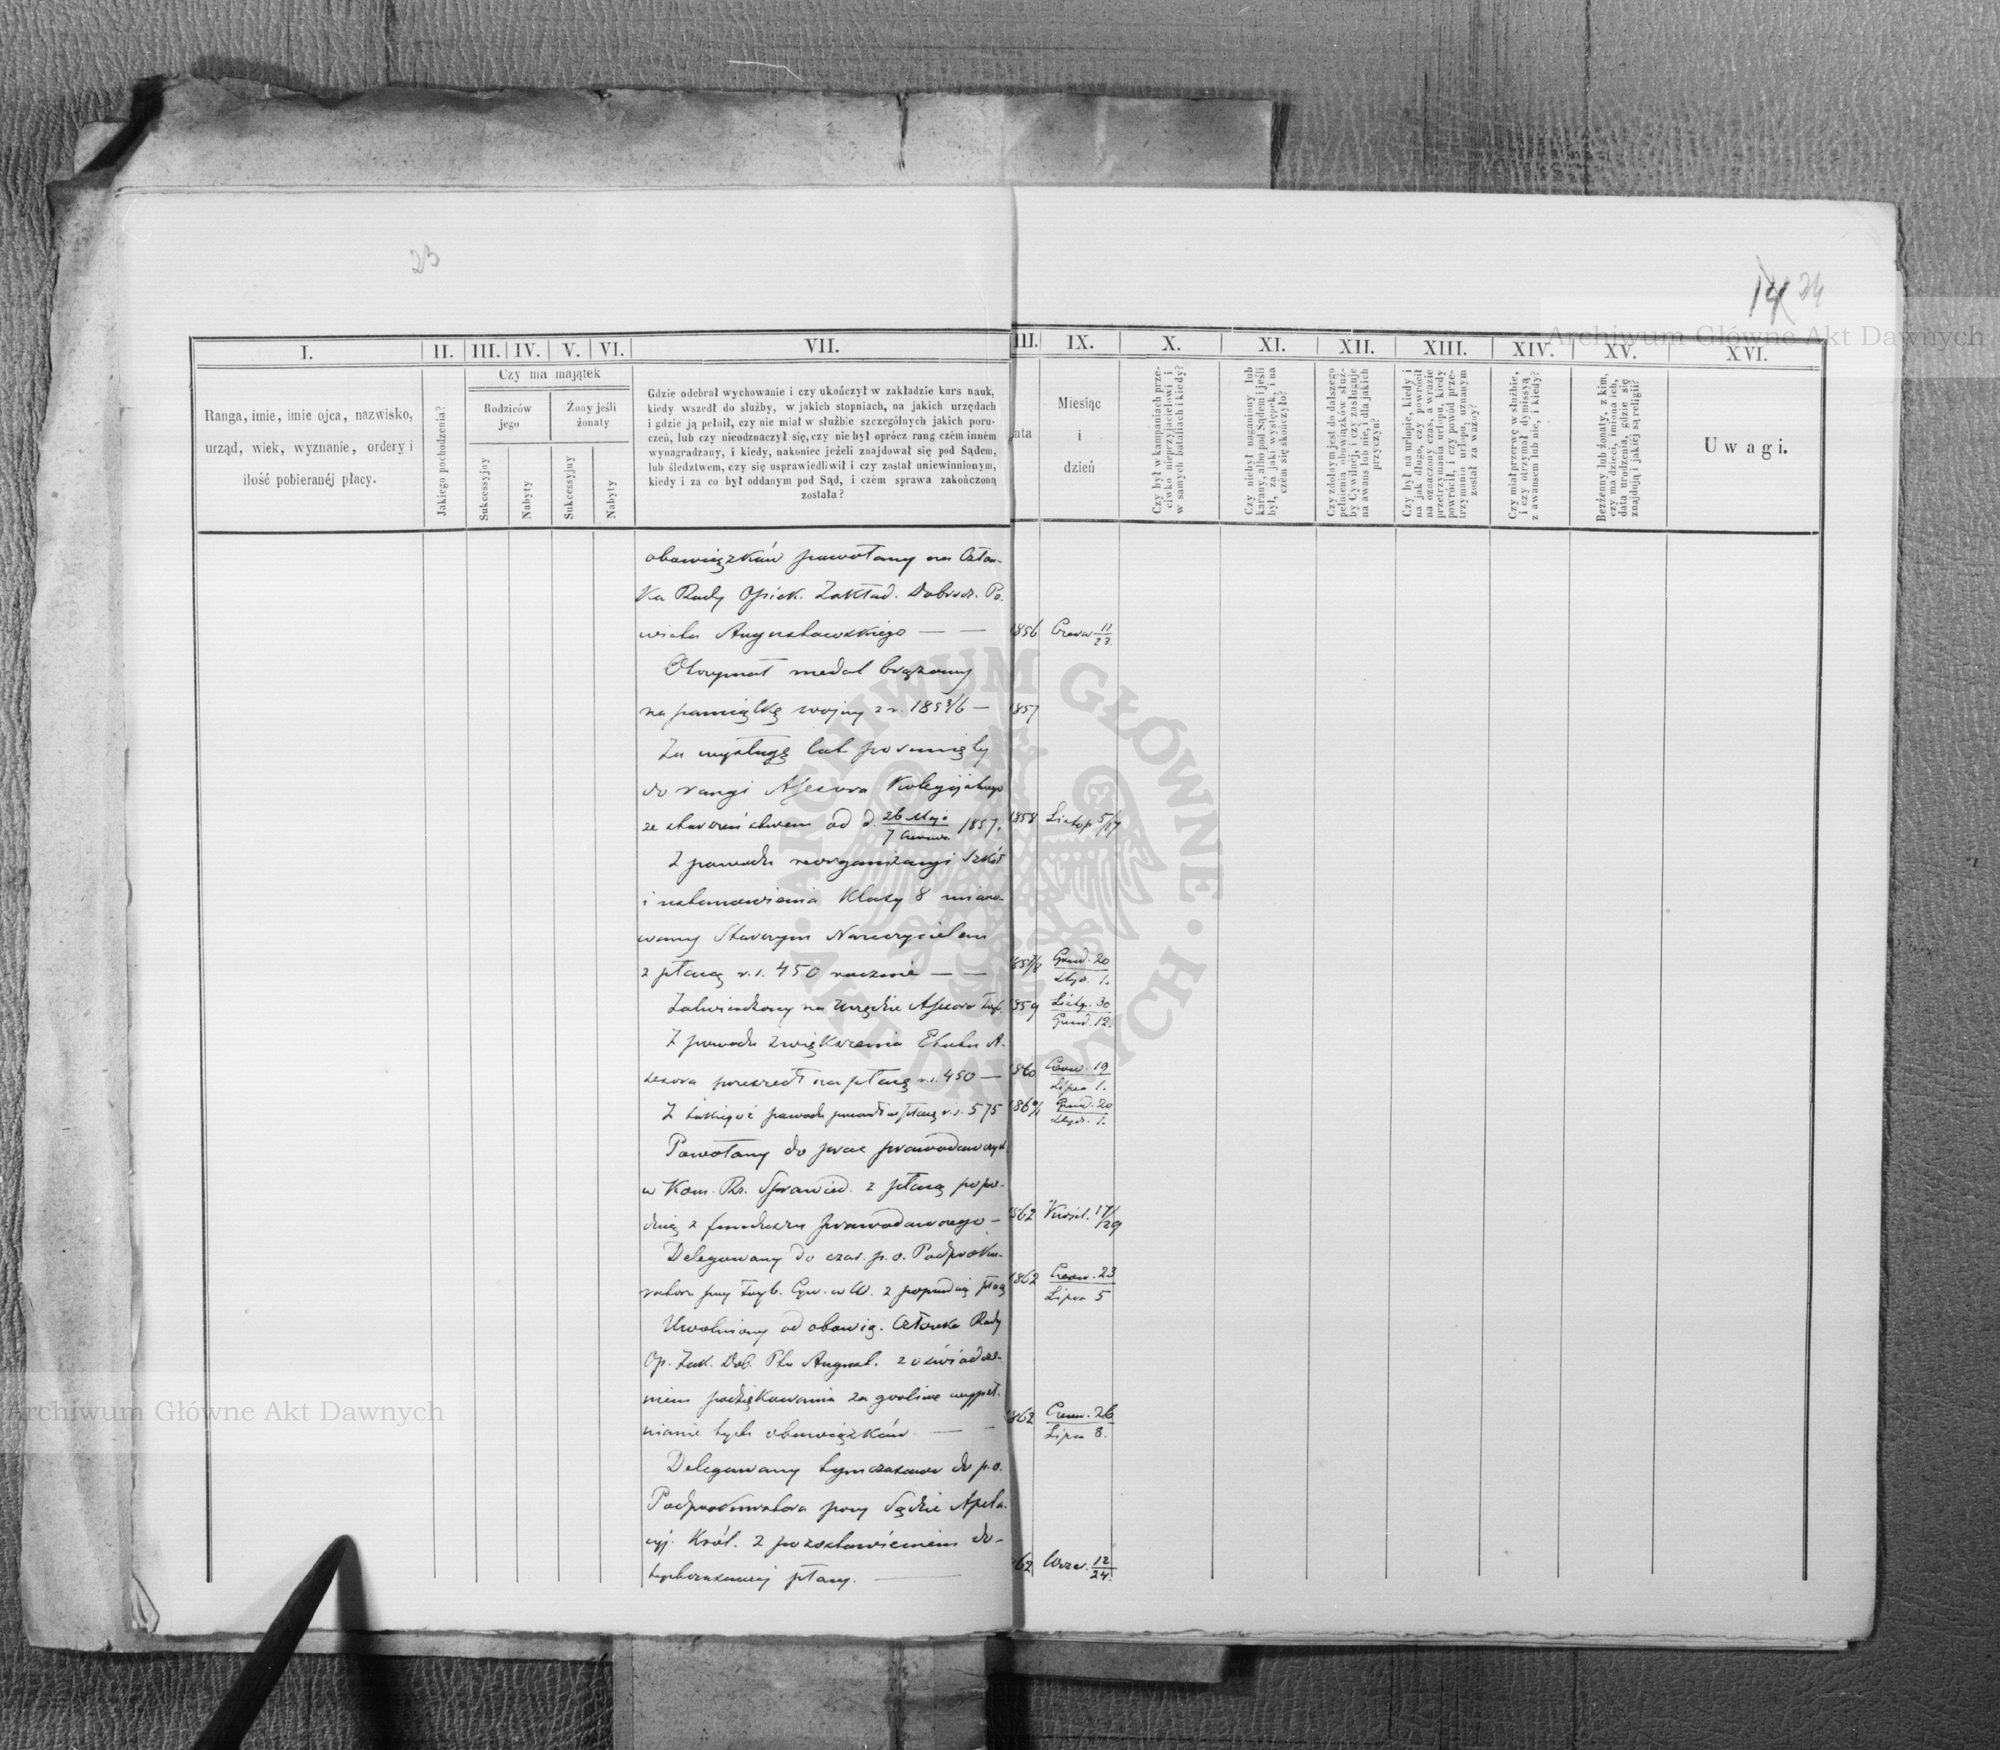 23
14 24
I.
II.
III.
IV.
V.
VI.
VII.
III.
IX.
X.
XI.
XII.
XIII.
XIV.
XV.
XVI.
Ranga, imie, imie ojca, nazwisko,
urząd, wiek, wyznanie, ordery i
ilość pobieranéj płacy.
Jakiego pochodzenia?
Czy ma majątek
Rodziców
jego
Żony jeśli
żonaty
Sukcessyjny
Nabyty
Sukcessyjny
Nabyty
Gdzie odebrał wychowanie i czy ukończył w zakładzie kurs nauk,
kiedy wszedł do służby, w jakich stopniach, na jakich urzędach
i gdzie ją pełnił, czy nie miał w służbie szczególnych jakich poru-
czeń, lub czy nieodznaczył się, czy nie był oprócz rang czém inném
wynagradzany, i kiedy, nakoniec jeżeli znajdował się pod Sądem,
lub śledztwem, czy się usprawiedliwił i czy został uniewinnionym,
kiedy i za co był oddanym pod Sąd, i czém sprawa zakończoną
została?
ata
Miesiąc
i
dzień
Czy był w kampaniach prze-
ciwko nieprzyjacielowi i
w samych bataliach i kiedy?
Czy niebył naganiony lub
karany, albo pod Sądem i jeśli
był, za jaki występek, i na
czém się skończyło?
Czy zdolnym jest do dalszego
pełnienia obowiązków służ-
by Cywilnéj, i czy zasługuje
na awans lub nie, i dla jakich
przyczyn?
Czy był na urlopie, kiedy i
na jak długo, czy powrócił
na oznaczony czas, a w razie
przetrzymania urlopu, kiedy
powrócił, i czy powód prze-
trzymania urlopu, uznanym
został za ważny?
Czy miał przerwę w służbie,
i czy otrzymał dymissyą
z awansem lub nie, i kiedy?
Bezżenny lub żonaty, z kim,
czy ma dzieci, imiona ich,
data urodzenia, gdzie się
znajdują i jakiéj są religii?
Uwagi.
obowiązków powołany na Człon-
ka Rady Opiek. Zakład. Dobrocz. Po.
wiatu Augustowskiego — — 1856 Czerw 11/23.
Otrzymał medal brązowy
na pamiątkę wojny z r. 1853/6 — 1857
Za wysługę lat posunięty
do rangi Assesora Kolegijalnego
ze starszeństwem od d. 26 Maja/7 Czerwca 1857. 1858 Listop 5/17
Z powodu reorganizacyi Szkół
i ustanowienia Klasy 8 miano-
wany Starszym Nauczycielem
z płacą r. s. 450 rocznie — — 1857/8 Grud. 20/Stycz. 1.
Zatwierdzony na Urzędzie Assesora Tryb. 1859 Listop. 30/Grud. 12.
Z powodu zwiększenia Etatu A-
sesora przeszedł na płacę r. s. 450 — 1860 Czerw. 19/Lipca 1.
Z takiegoż powodu przeszedł na płacę r. s. 575 1860/1 Grud. 20/Stycz. 1.
Powołany do prac prawodawczych
w Kom. Rz. Sprawied. z płacą poprze-
dnią z funduszu prawodawczego — 1862 Kwiet. 17/29
Delegowany do czas. p. o. Podproku-
ratora przy Tryb. Cyw. w W. z poprzednią płacą 1862 Czerw. 23/Lipca 5
Uwolniony od obowią. Członka Rady
Op. Zak. Dob. Ptu August. z oświadcze-
niem podziękowania za gorliwe wypeł-
nianie tych obowiązków. — — 862 Czerw. 26/Lipca 8.
Delegowany tymczasowo do p. o.
Podprokuratora przy Sądzie Apela-
cyj. Król. z pozostawieniem do-
tychczasowej płacy. — 62 Wrze. 12/24.
Archiwum Główne Akt Dawnych
Archiwum Główne Akt Dawnych
ARCHIWUM GŁÓWNE AKT DAWNYCH